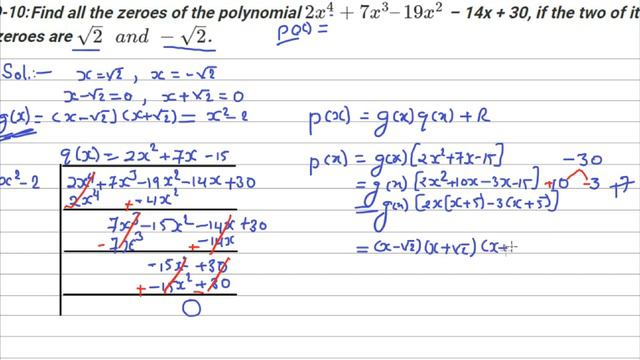 -10:Find all the zeroes of the polynomial 2x⁴ + 7x³ – 19x² – 14x + 30, if the two of it
zeroes are √2 and – √2.
p(x) =
Sol:- x = √2 , x = -√2
x-√2 = 0 , x+√2 = 0
g(x) = (x-√2)(x+√2) = x²-2
q(x) = 2x²+7x-15
x²-2 2x⁴+7x³-19x²-14x+30
2x⁴ + -4x²
7x³-15x²-14x+30
- 7x³ + -14x
-15x² +30
+ -15x² + 30
0
p(x) = g(x) q(x) + R
p(x) = g(x)[2x²+7x-15]
= g(x)[2x²+10x-3x-15]
= g(x)[2x(x+5)-3(x+5)]
= (x-√2)(x+√2)(x+
-30
+10 -3 +7